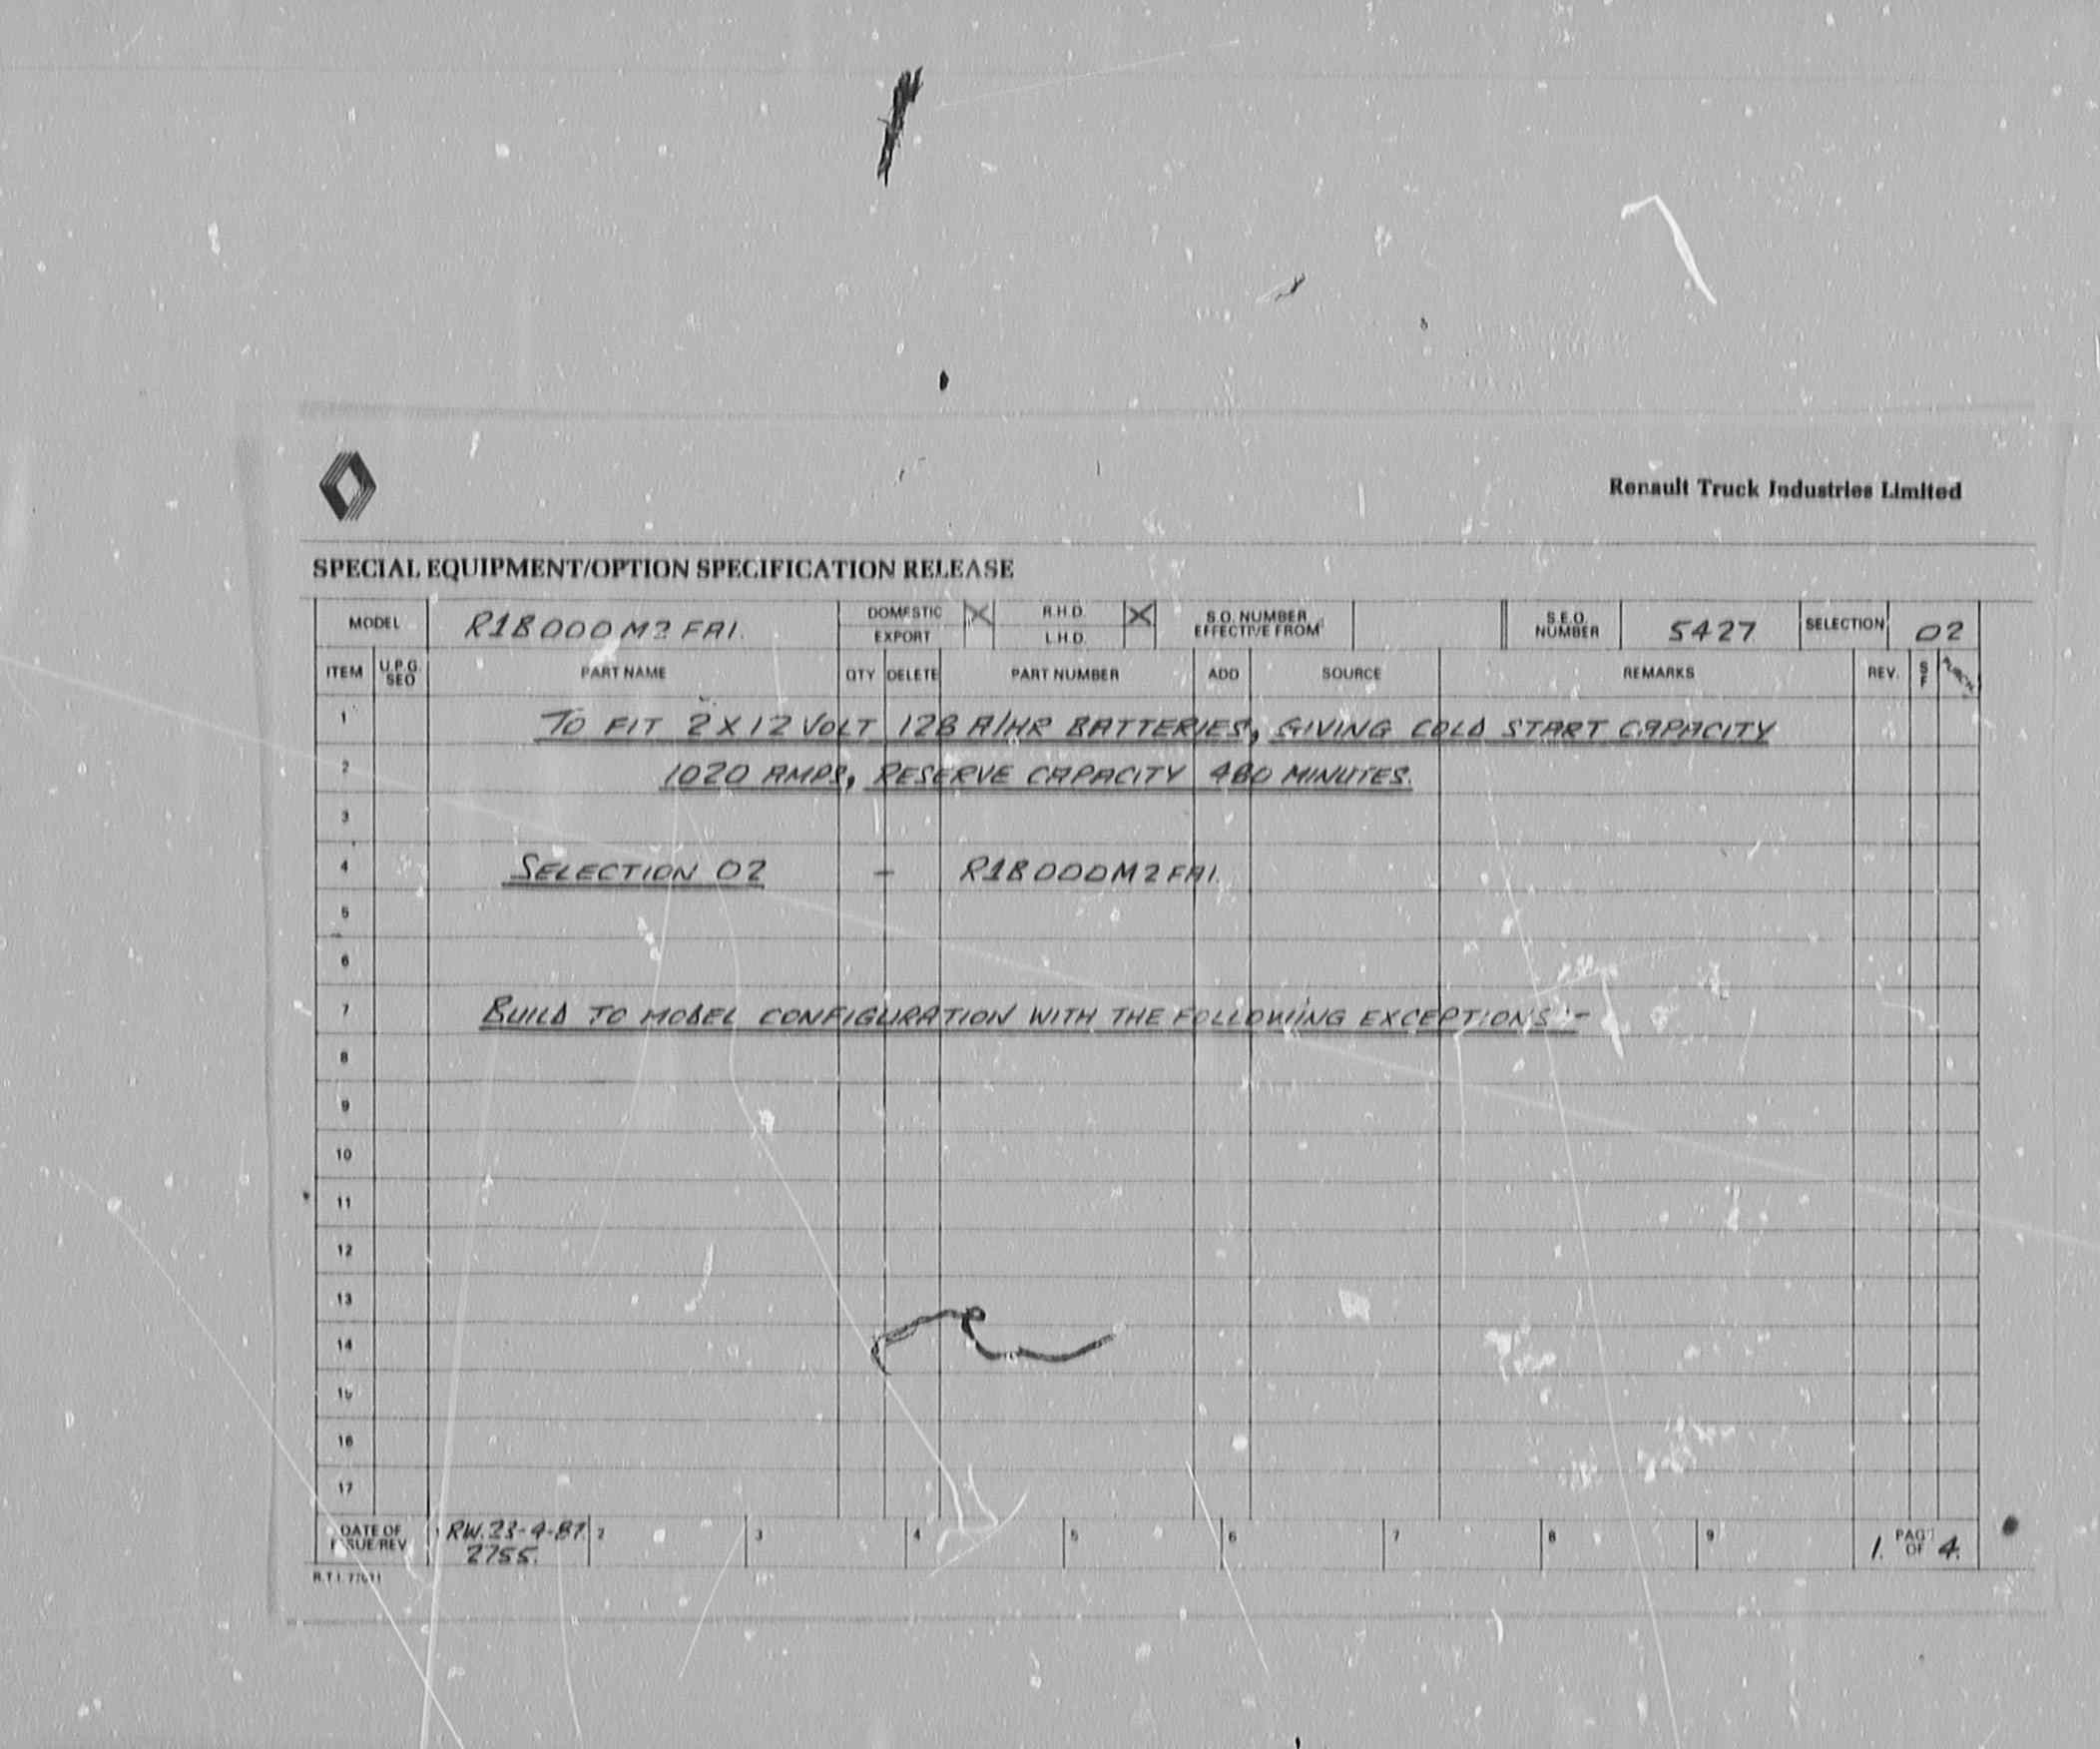 Renault Truck Industries Limited
SPECIAL EQUIPMENT/OPTION SPECIFICATION RELEASE
MODEL R18000M2FA1. DOMESTIC X R.H.D. X S.O. NUMBER EFFECTIVE FROM S.E.O. NUMBER 5427 SELECTION 02
EXPORT L.H.D.
ITEM U.P.G. SEO PART NAME QTY DELETE PART NUMBER ADD SOURCE REMARKS REV. S F
1 TO FIT 2 X 12 VOLT 128 A/HR BATTERIES, GIVING COLD START CAPACITY
2 1020 AMPS, RESERVE CAPACITY 480 MINUTES.
3
4 SELECTION 02 - R18000M2FA1.
5
6
7 BUILD TO MODEL CONFIGURATION WITH THE FOLLOWING EXCEPTIONS :-
8
9
10
11
12
13
14
15
16
17
DATE OF ISSUE/REV 1 RW. 23-4-87 2 3 4 5 6 7 8 9 1. PAGE OF 4.
2755.